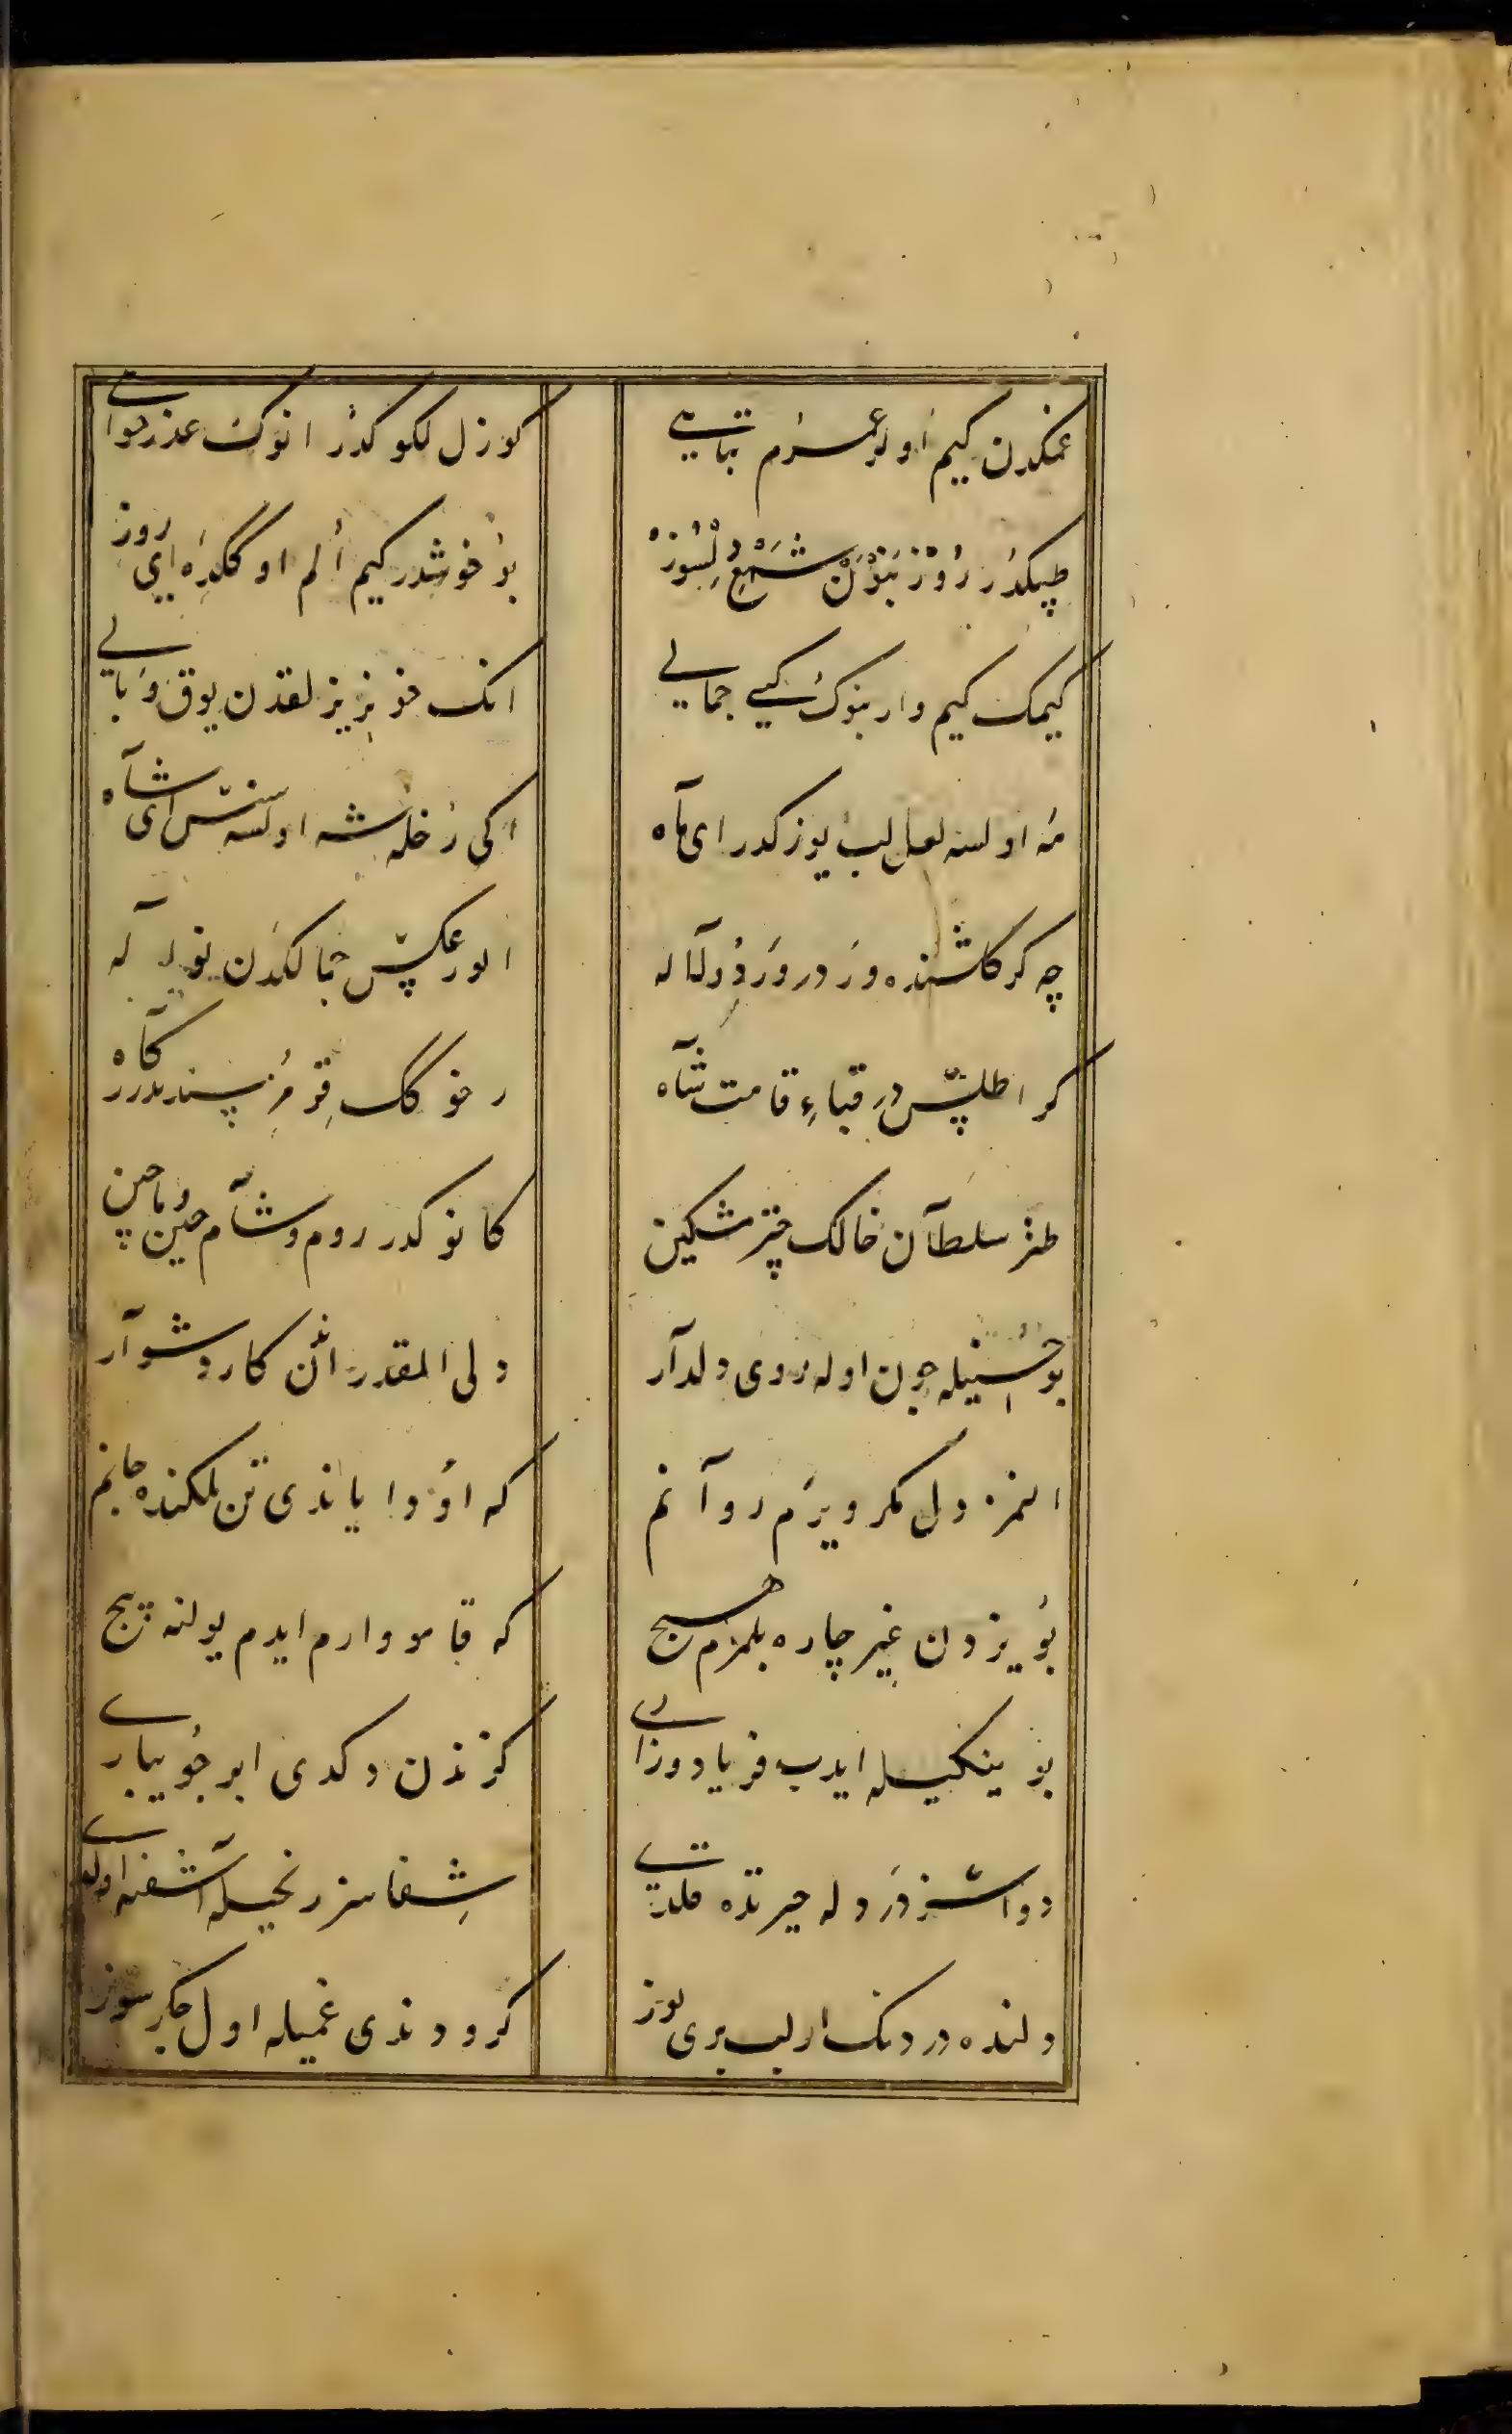 غمکدن کیم اولر عمرم تباهی کوزللکوکدر انوک عذرخواهی
طپکدر روز بتون شمع دلسوز بو خوشدر کیم اُلم اوکگده ای روز
کیمک کیم وار بنوک کیبی جمالی انک خونریزلقدن یوق وبالی
مه اولسه لعل لب یوزکدر ای ماه اکی رخله شه اولسه سنسّن ای شاه
چه کر کلشنده ورد در ورد ولاله الور عکس جمالکدن نواله
کر اطلس در قباء قامت شاه رخوکک قرمز سندندر کاه
طنز سلطان خالک چتر مشکین کانوکدر روم وشام وچین وماچین
بو حسنیله چون اوله روی دلدار ولی المقدر اندن کار دشوار
النمز دل مکر ویرم روانم که اودا یاندی تن ملکنده جانم
بو یزدن غیر چاره بلمزم هیچ که قامو وارم ایدم یولنه هیچ
بو ینکیله ایدب فریاد وزاری کزندن دکدی ابر جویباری
دواسز درد له حیرتده قلدی شفاسز رنجیله آشفته اولدی
دلنده دردنک ارلب بری یوز کرودندی غمیله اول جکرسوز